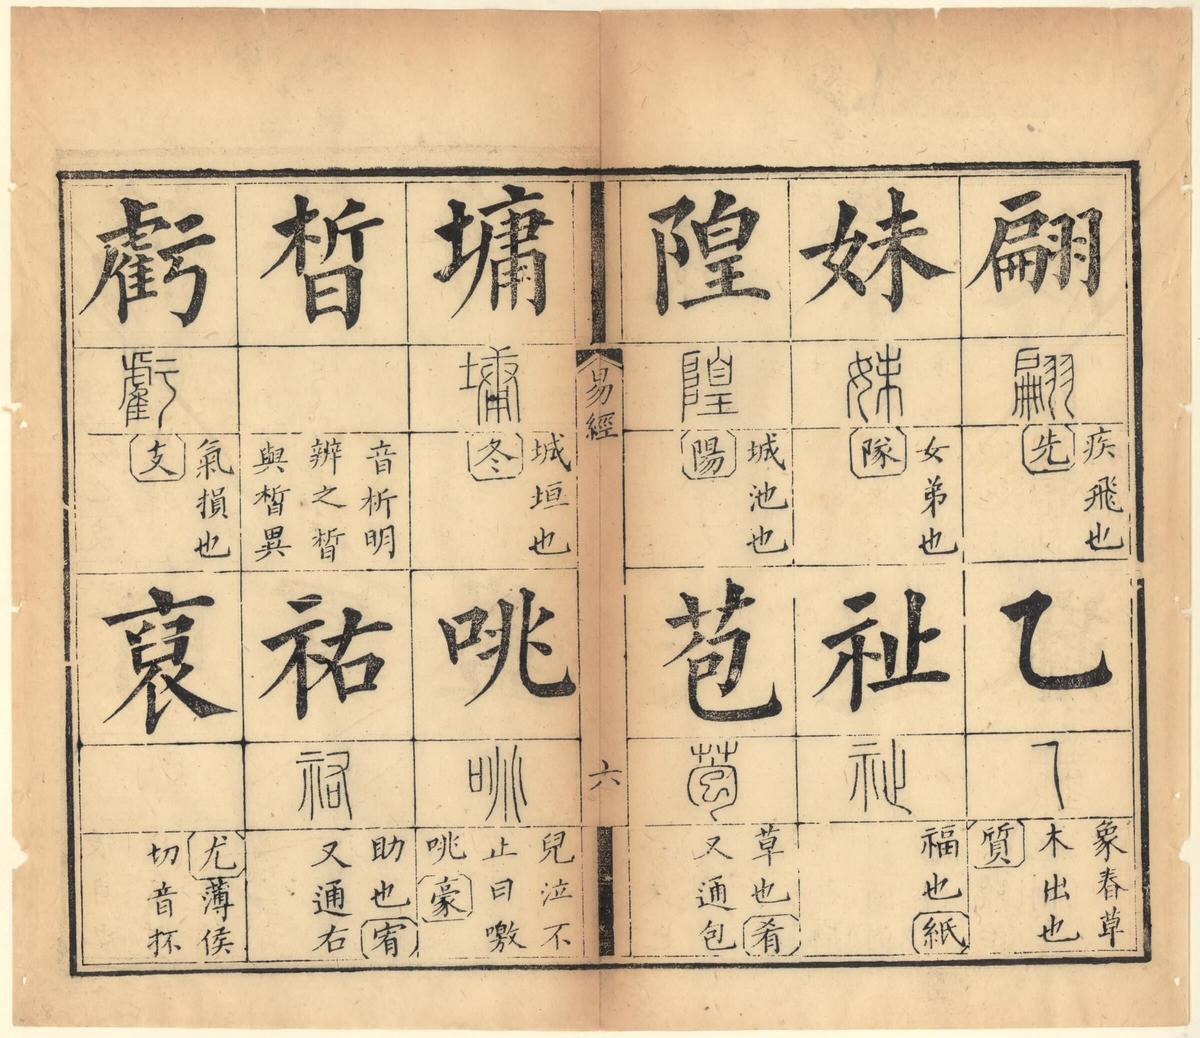 翩
翩
疾飛也
先
乙
乙
象春草
木出也
質
妹
妹
女弟也
隊
祉
祉
福也紙
隍
隍
城池也
陽
苞
苞
草也肴
又通包
易經
六
墉
墉
城垣也
冬
咷
咷
兒泣不
止曰噭
咷豪
晳
音析明
辨之晳
與皙異
祐
祐
助也宥
又通右
虧
虧
氣損也
支
裒
尤薄侯
切音抔